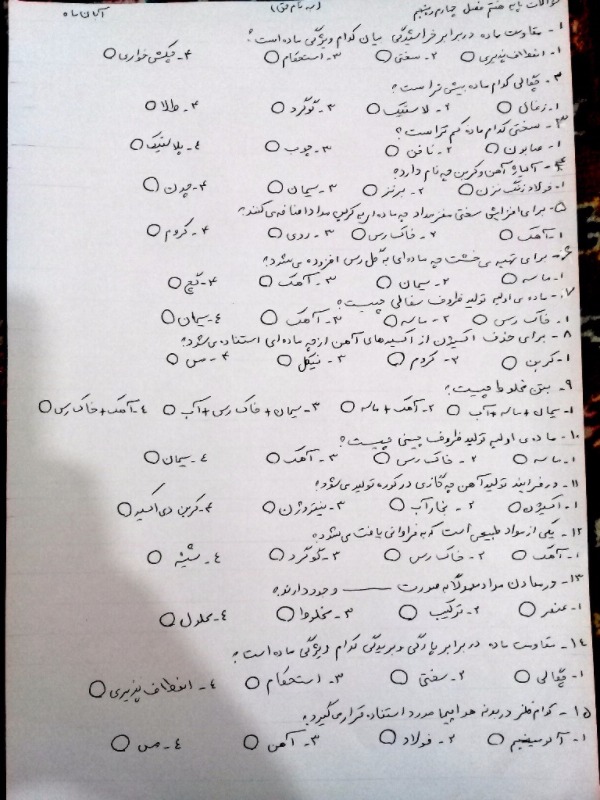 سوالات پایه هفتم فصل چهارم پنجم (به نام حق) آبان ماه
۱- مقاومت ماده در برابر خراشیدگی بیان کدام ویژگی ماده است؟
۱- انعطاف پذیری ۲- سختی ۳- استحکام ۴- چکش خواری
۲- چگالی کدام ماده بیش تر است؟
۱- زغال ۲- لاستیک ۳- گوگرد ۴- طلا
۳- سختی کدام ماده کم تر است؟
۱- صابون ۲- ناخن ۳- چوب ٤- پلاستیک
۴- آلیاژ آهن و کربن چه نام دارد؟
۱- فولاد زنگ نزن ۲- برنز ۳- سیمان ۴- چدن
۵- برای افزایش سختی مغز مداد چه ماده ای به کربن مداد اضافه می کنند؟
۱- آهک ۲- خاک رس ۳- روی ۴- کروم
۶- برای تهیه ی خشت چه ماده ای به گل رس افزوده می شود؟
۱- ماسه ۲- سیمان ۳- آهک ۴- گچ
۷- ماده ی اولیه تولید ظروف سفالی چیست؟
۱- خاک رس ۲- ماسه ۳- آهک ٤- سیمان
۸- برای حذف اکسیژن از اکسیدهای آهن از چه ماده ای استفاده می شود؟
۱- کربن ۲- کروم ۳- نیکل ۴- مس
۹- بتن مخلوط چیست؟
۱- سیمان + ماسه + آب ۲- آهک + ماسه ۳- سیمان + خاک رس + آب ٤- آهک + خاک رس
۱۰- ماده ی اولیه تولید ظروف چینی چیست؟
۱- ماسه ۲- خاک رس ۳- آهک ٤- سیمان
۱۱- در فرایند تولید آهن چه گازی در کوره تولید می شود؟
۱- اکسیژن ۲- بخار آب ۳- نیتروژن ۴- کربن دی اکسید
۱۲- یکی از مواد طبیعی است که به فراوانی یافت می شود؟
۱- آهک ۲- خاک رس ۳- گوگرد ٤- شیشه
۱۳- در معادن مواد معمولا به صورت ــــــــ وجود دارند؟
۱- عنصر ۲- ترکیب ۳- مخلوط ٤- محلول
۱۴- مقاومت ماده در برابر پارگی و بریدگی کدام ویژگی ماده است؟
۱- چگالی ۲- سختی ۳- استحکام ٤- انعطاف پذیری
۱۵- کدام فلز در بدنه هواپیما مورد استفاده قرار می گیرد؟
۱- آلومینیم ۲- فولاد ۳- آهن ٤- مس